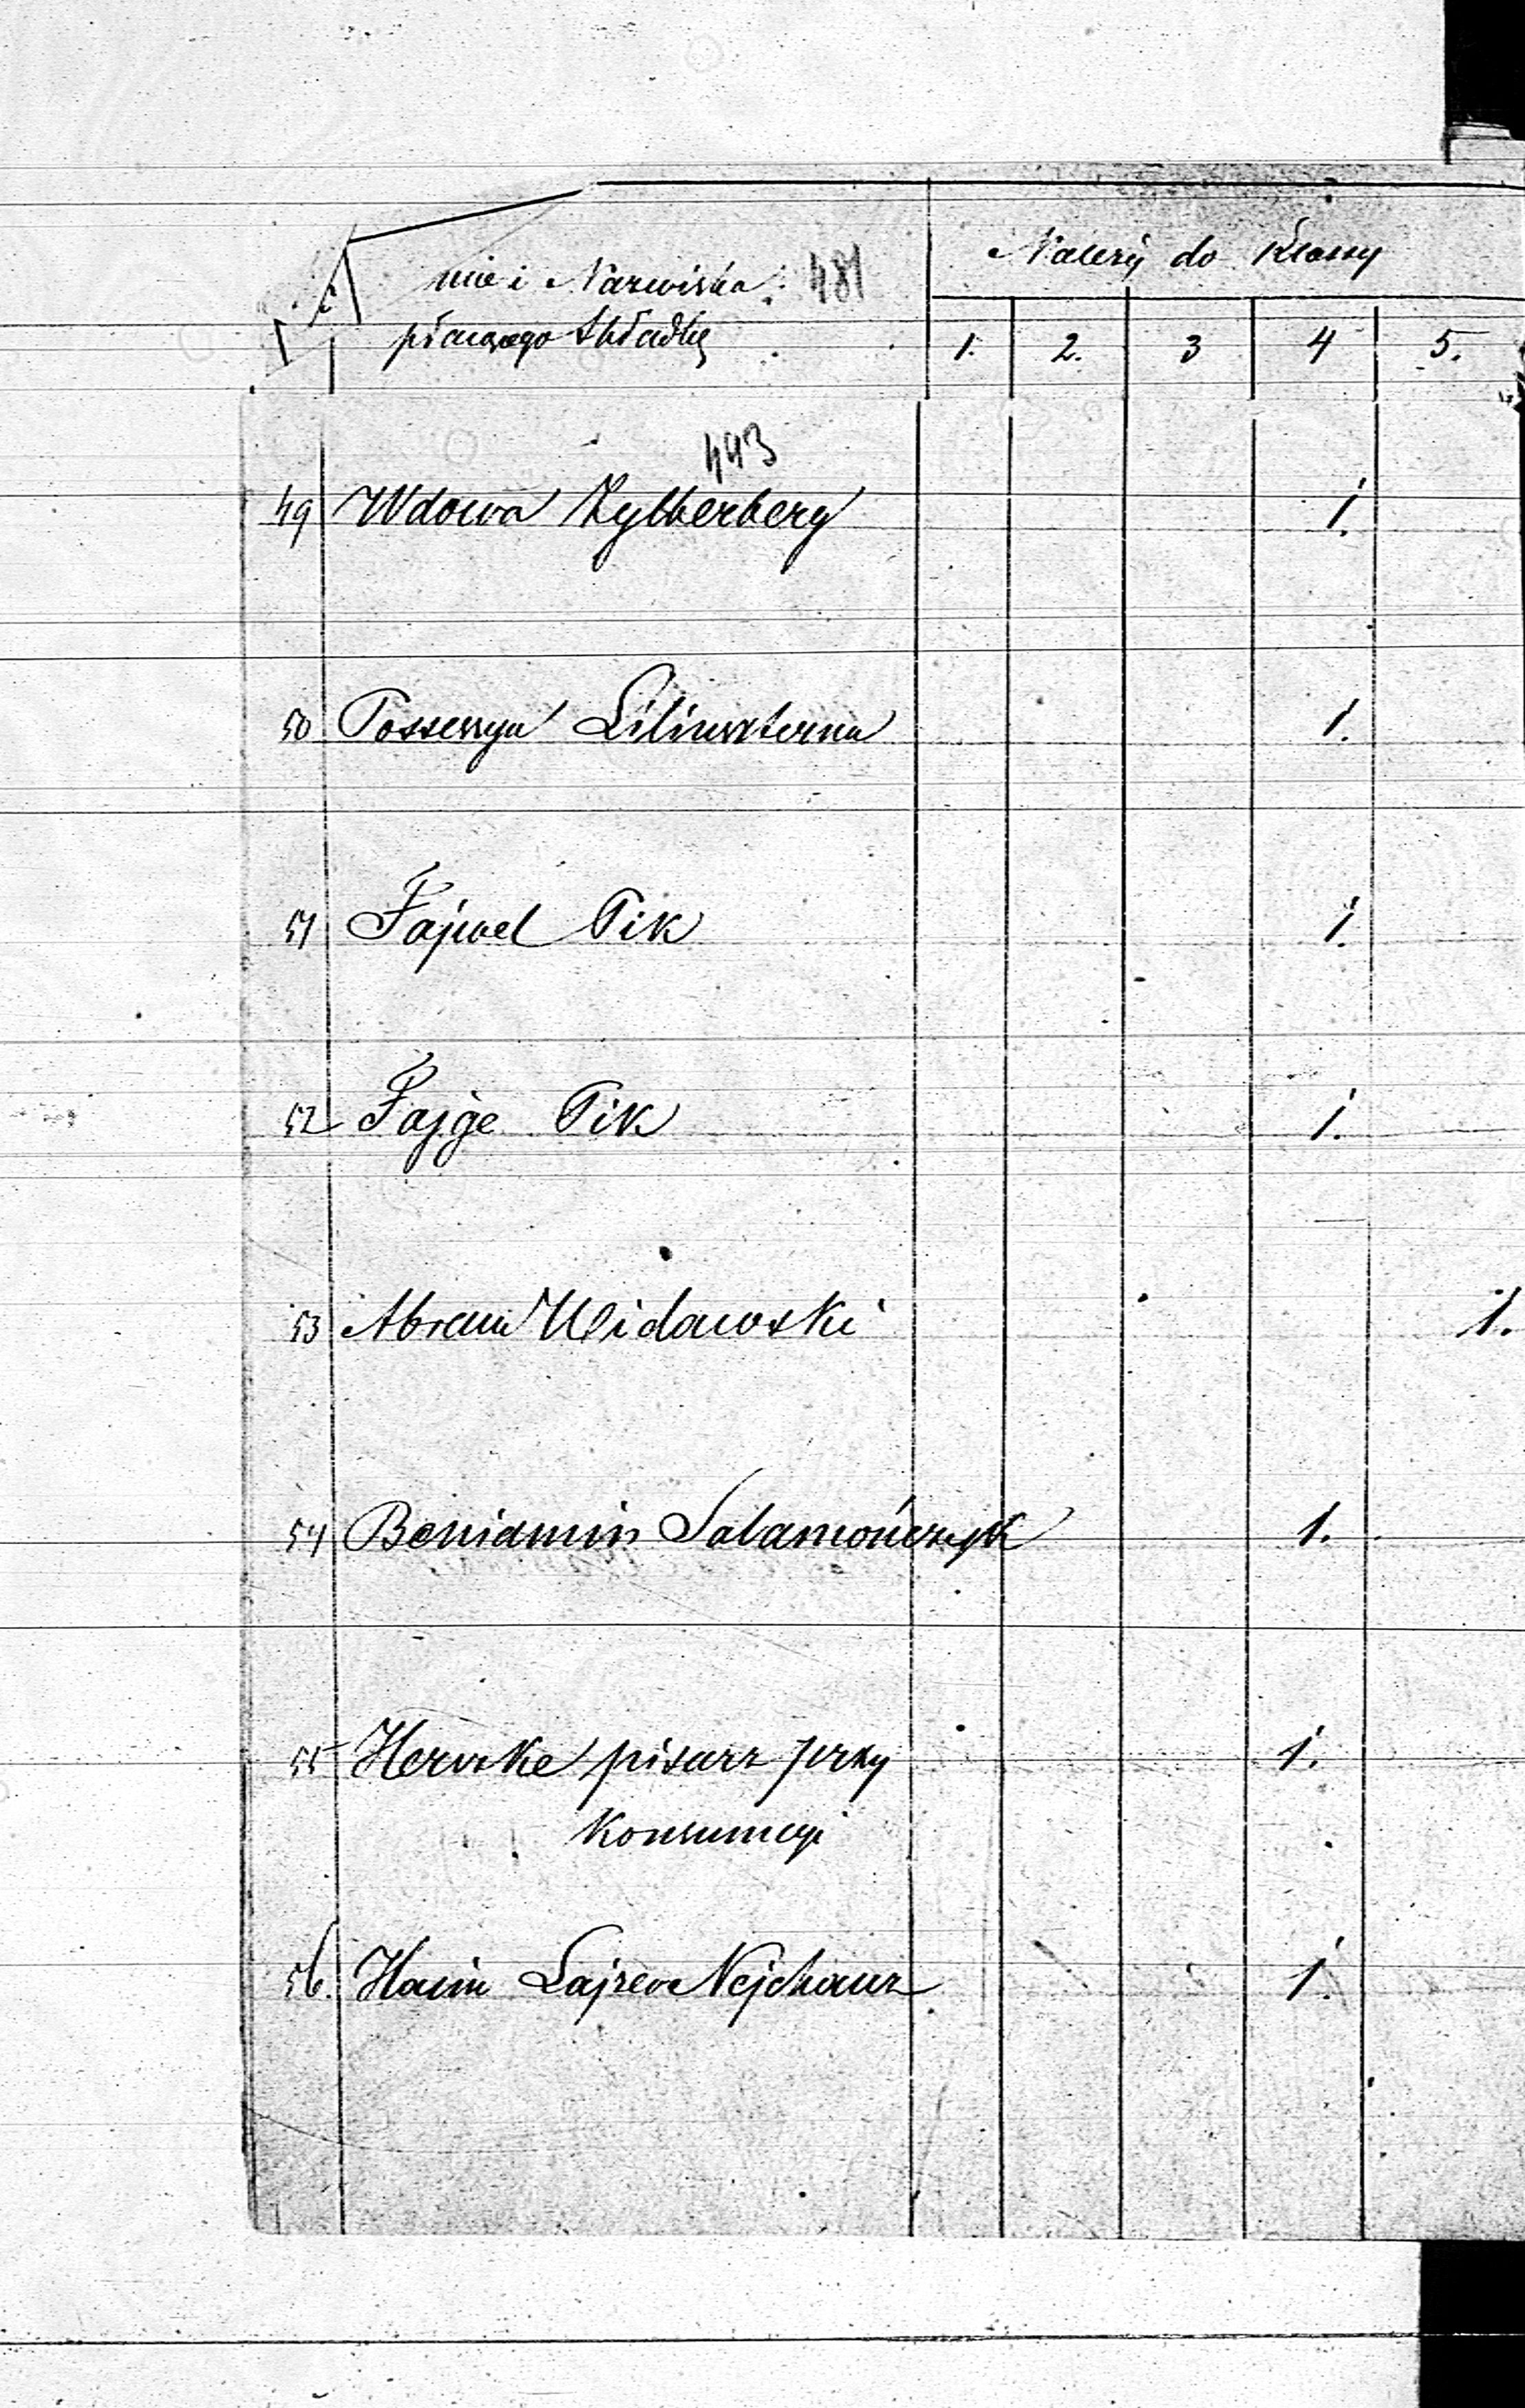 mie i Nazwiska 481
płacącego składkę
Należy do Klassy
1. 2. 3 4 5.
443
49 Wdowa Zylberberg 1.
50 Possessya Lilinszterna 1.
51 Fajwel Pik 1.
52 Fajge Pik 1.
53 Abram Widawski 1.
54 Beniamin Salamończyk 1.
55 Herszke pisarz przy 1.
Konsumcyi
56. Haim Lajzer Nejchauz 1.